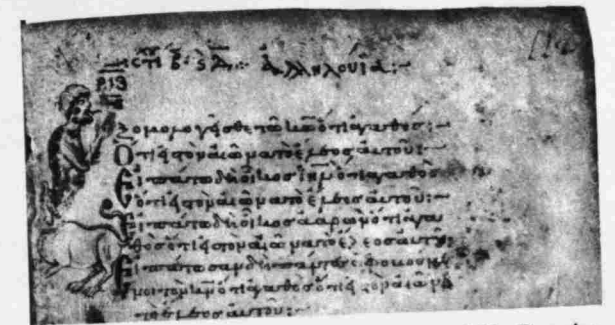 ἀλληλούϊα:-
ξομολογεῖσθε τῶ κῶ ὅτι ἀγαθός:-
Ὅτι εἰς τὸν αἰῶνα τὸ ἔλεος αὐτοῦ:-
Εἰπάτω δὴ οἶκος ιηλ ὅτι ἀγαθὸς
ὅτι εἰς τὸν αἰῶνα τὸ ἔλεος αὐτοῦ:-
Εἰπάτω δὴ οἶκος ἀαρὼν ὅτι ἀγα
θὸς ὅτι εἰς τὸν αἰῶνα τὸ ἔλεος αὐτοῦ:
Εἰπάτωσαν δὴ πάντες οἱ φοβούμε
νοι τὸν κν ὅτι ἀγαθὸς ὅτι εἰς τὸν αἰῶνα
τὸ ἔλεος αὐτοῦ:-